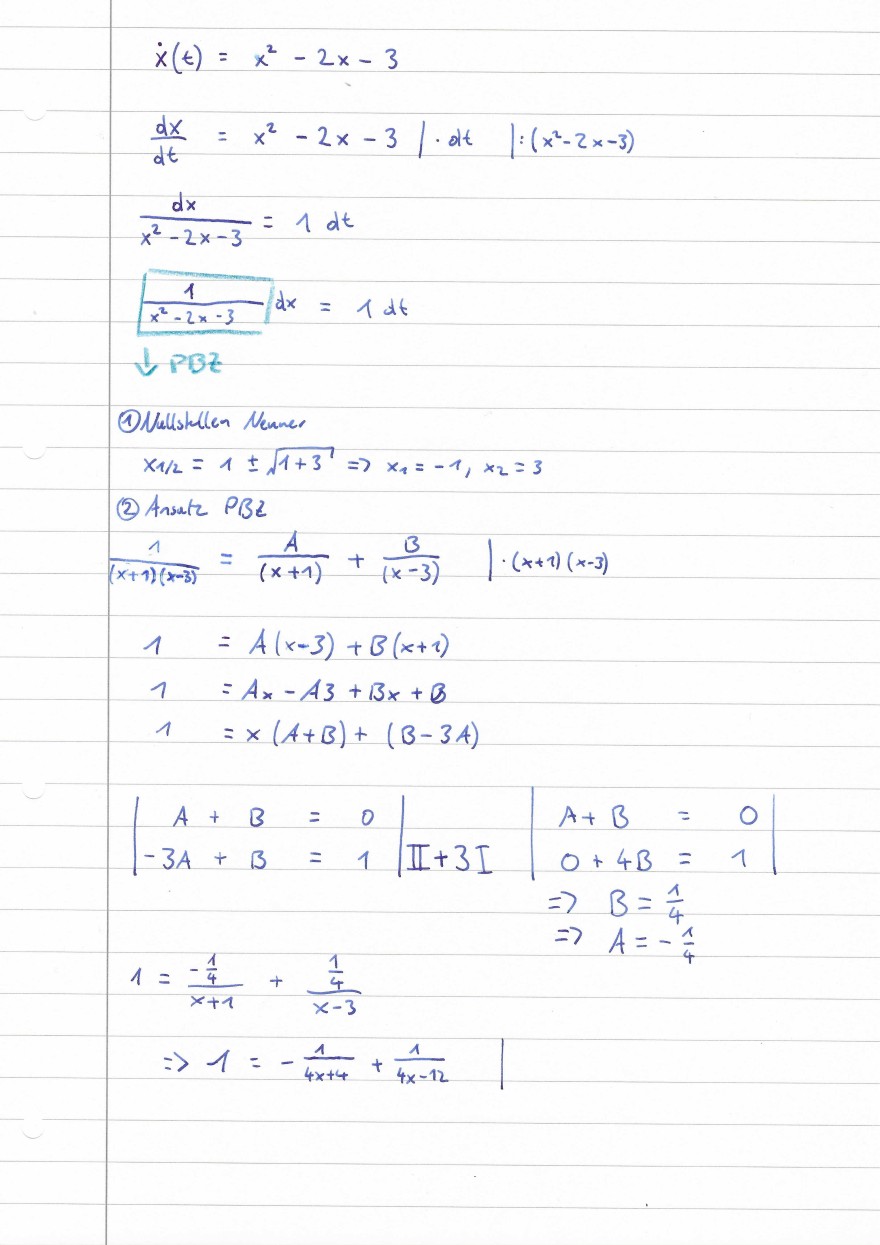 ẋ(t) = x² - 2x - 3
dx/dt = x² - 2x - 3 | · dt |:(x²-2x-3)
dx/(x²-2x-3) = 1 dt
1/(x²-2x-3) dx = 1 dt
↓ PBZ
① Nullstellen Nenner
x1/2 = 1 ± √(1+3) => x₁ = -1, x₂ = 3
② Ansatz PBZ
1/((x+1)(x-3)) = A/(x+1) + B/(x-3) | · (x+1)(x-3)
1 = A(x-3) + B(x+1)
1 = Ax - A3 + Bx + B
1 = x(A+B) + (B-3A)
| A + B = 0 | | A + B = 0 |
| -3A + B = 1 | II+3I | 0 + 4B = 1 |
=> B = 1/4
=> A = -1/4
1 = (-1/4)/(x+1) + (1/4)/(x-3)
=> 1 = - 1/(4x+4) + 1/(4x-12) |